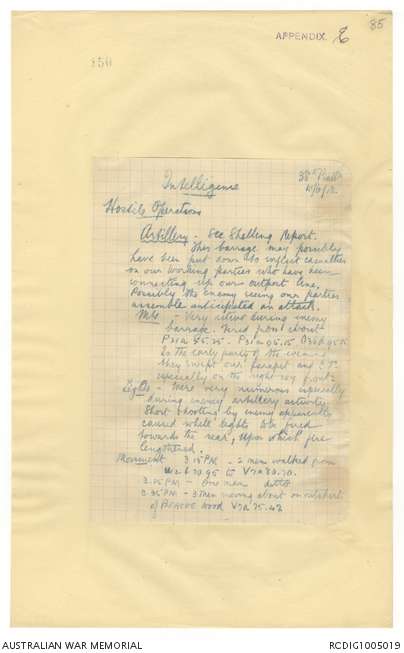 APPENDIX. E
85
150
Intelligence
38th Battn
Hostile Operations
Artillery - See Shelling Report.
This barrage may possibly
have been put down to inflict casualties
on our working parties who have been
connecting up our outpost line,
Possibly the enemy seeing our parties
assemble anticipated an attack.
M.Gs. - Very active during enemy
barrage. Fired from about
In the early party of the evening
they swept our parapet and C.T's
especially on the right coy front
Lights - Were very numerous especially
during enemy artillery activity
Short shooting by enemy apparently
caused white lights to be fired
towards the rear, upon which fire
lengthened.
Movement 3.15 PM - 2 men walked from
to V7a 80.70.
3.25 PM - One man ditto
3.35 PM - 3 men moving about on outskirt
of wood V7a 75.42
AUSTRALIAN WAR MEMORIAL
RCDIG1005019